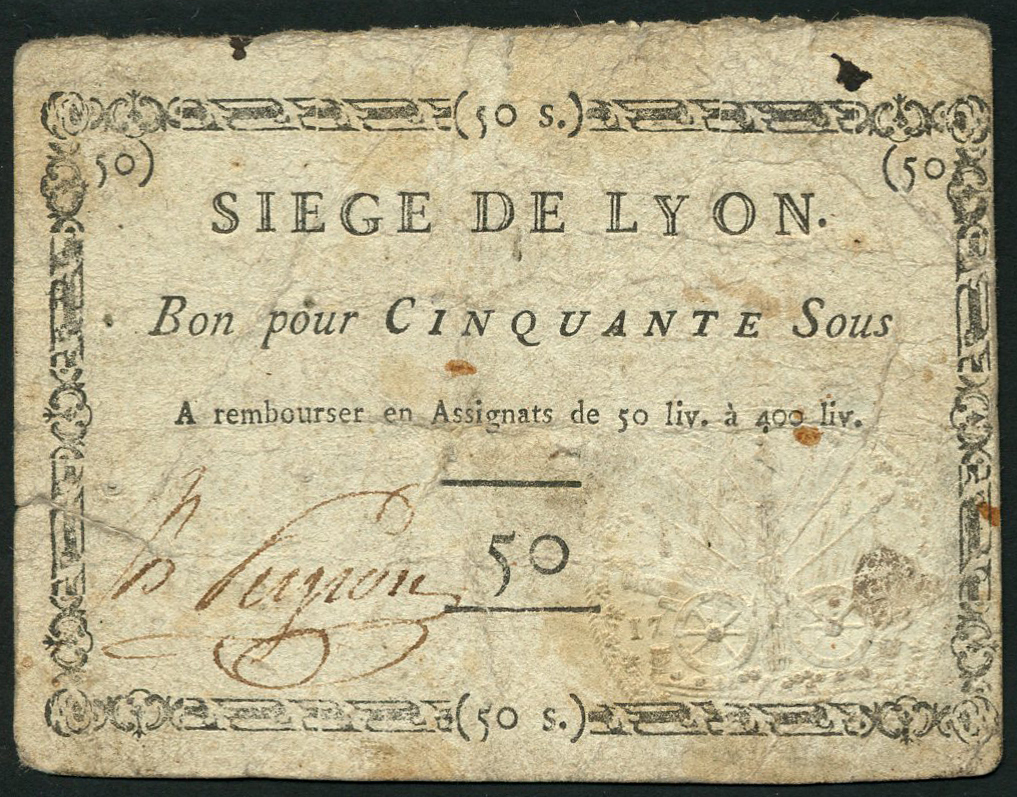 (50 s.)
50) (50
SIEGE DE LYON.
Bon pour CINQUANTE Sous
A rembourser en Assignats de 50 liv. à 400 liv.
50
17
(50 s.)